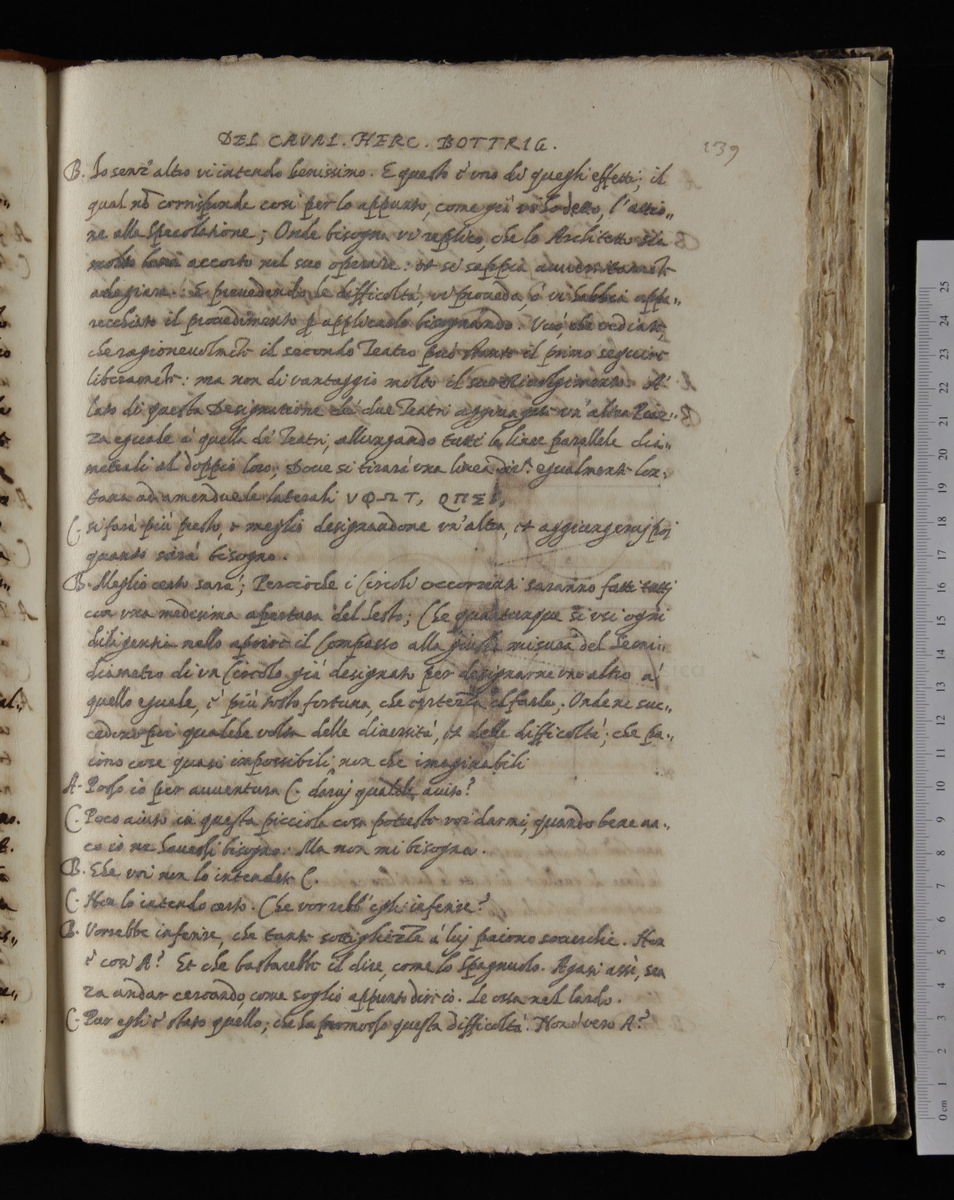 DEL CAVAL. HERC. BOTTRIG.
139
B. Io senz'altro vi intendo benissimo. E questo è uno di quegli effetti; il
qual nõ corrisponde cosi per lo appunto, come già vi hò detto, l'attio„
ne alla speculatione; Onde bisogna vi replico, che lo Architetto sia
molto bene accorto nel suo operare: et si sappia
adagiare. E prevedendo le difficoltà, vi proceda, ò vi habbia appa„
recchiato il procedimento applicarlo bisognando. che vediate
che ragionevolmte il secondo Teatro però stante il primo seguire
liberamte: ma non di vantaggio molto il suo rivolgimento. A'
lato di questa Designatione de' due Teatri aggiungasi un'altra Piaz„
za eguale à quella de' Teatri, allungando tutte le linee parallele dia„
metrali al doppio loro; Dove si tirarà una linea egualmente lon„
tana ad amendue le laterali ΥΦΩΤ, ϘΠΣΙ,
C. Si farà più presto, e meglio designandone un'altra, et aggiungervj poi
quanto sarà bisogno.
B. Meglio certo sarà; Percioche i Circoli occorrenti saranno fatti tutti
con una medesima apertura del Sesto; Che quantunque si usi ogni
diligentia nello aprire il Compasso alla giusta misura del Semi„
diametro di un Circolo già designato per designarne uno altro à
quello eguale, è più tosto fortuna, che certezza il farlo. Onde ne suc„
cedono poi qualche volta delle diversità, et delle difficoltà; che pa„
iono cose quasi impossibili non che imaginabili
A. Posso io per avventura C. darvj qualche aiuto?
C. Poco aiuto in questa picciola cosa potreste voi darmi, quando bene an„
co io ne havessi bisogno. Ma non mi bisogna.
B. Ehe voi non lo intendete C.
C. Non lo intendo certo. Che vorrebb'egli inferire?
B. Vorrebbe inferire, che tante sottigliezze à luj paiono soverchie. Non
è cosi A? Et che bastarebbe il dire, come lo Spagnuolo. Agasi assi, sen
za andar cercando, come soglio appunto dir io. Le ossa nel lardo.
C. Pur egli è stato quello; che hà promosso questa difficoltà. Non è vero A?